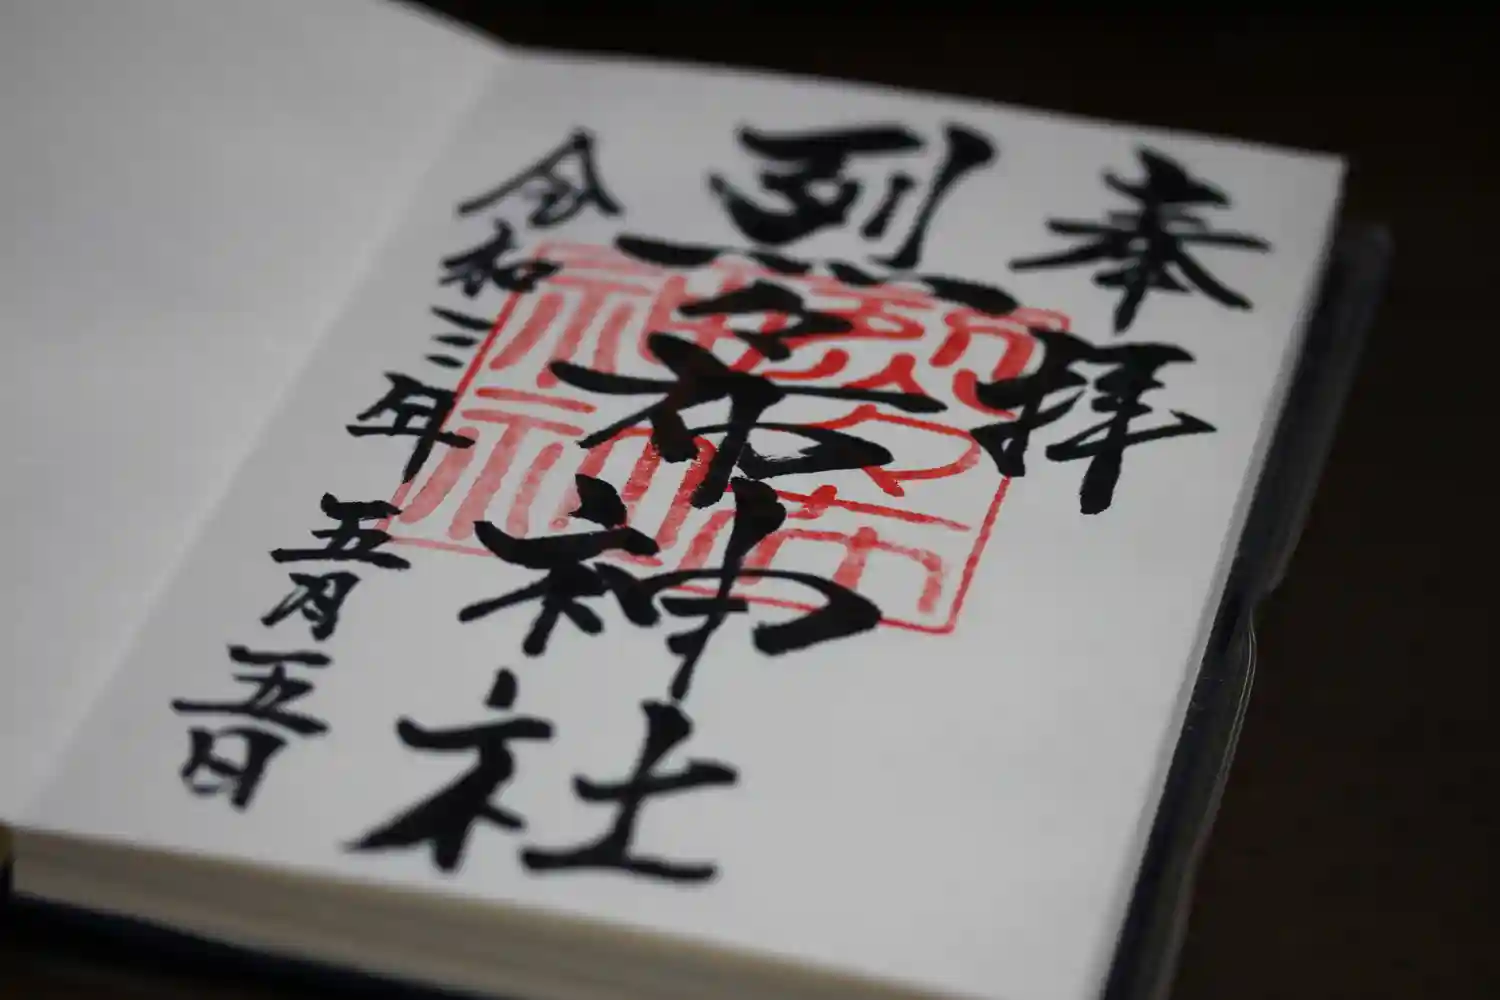 奉拝
烈々布神社
令和三年五月五日